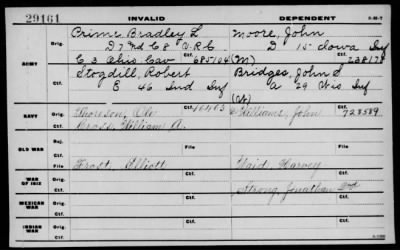 29161 INVALID DEPENDENT 3-35-7
Orig. Prime Bradley L Moore, John
D 7 md C 8 O.R.C D 15 Iowa Inf
ARMY C 3 Ohio Cav Ctf. 685104 (M) Ctf. 238178
Stogdill, Robert Bridges, John S
E 46 Ind Inf A 29 Wis Inf
Ctf. (Ct) Ctf.
NAVY Orig. Thoreson, Ole 16463 Williams, John 728589
Cross, William A.
Ctf. Ctf.
OLD WAR Rej.
Ctf. File File
WAR OF 1812 Orig. Frost, Elliott Waid, Harvey
Ctf. Ctf. Strong, Jonathan 2nd
MEXICAN WAR Orig.
Ctf. Ctf.
INDIAN WAR Orig.
Ctf. Ctf.